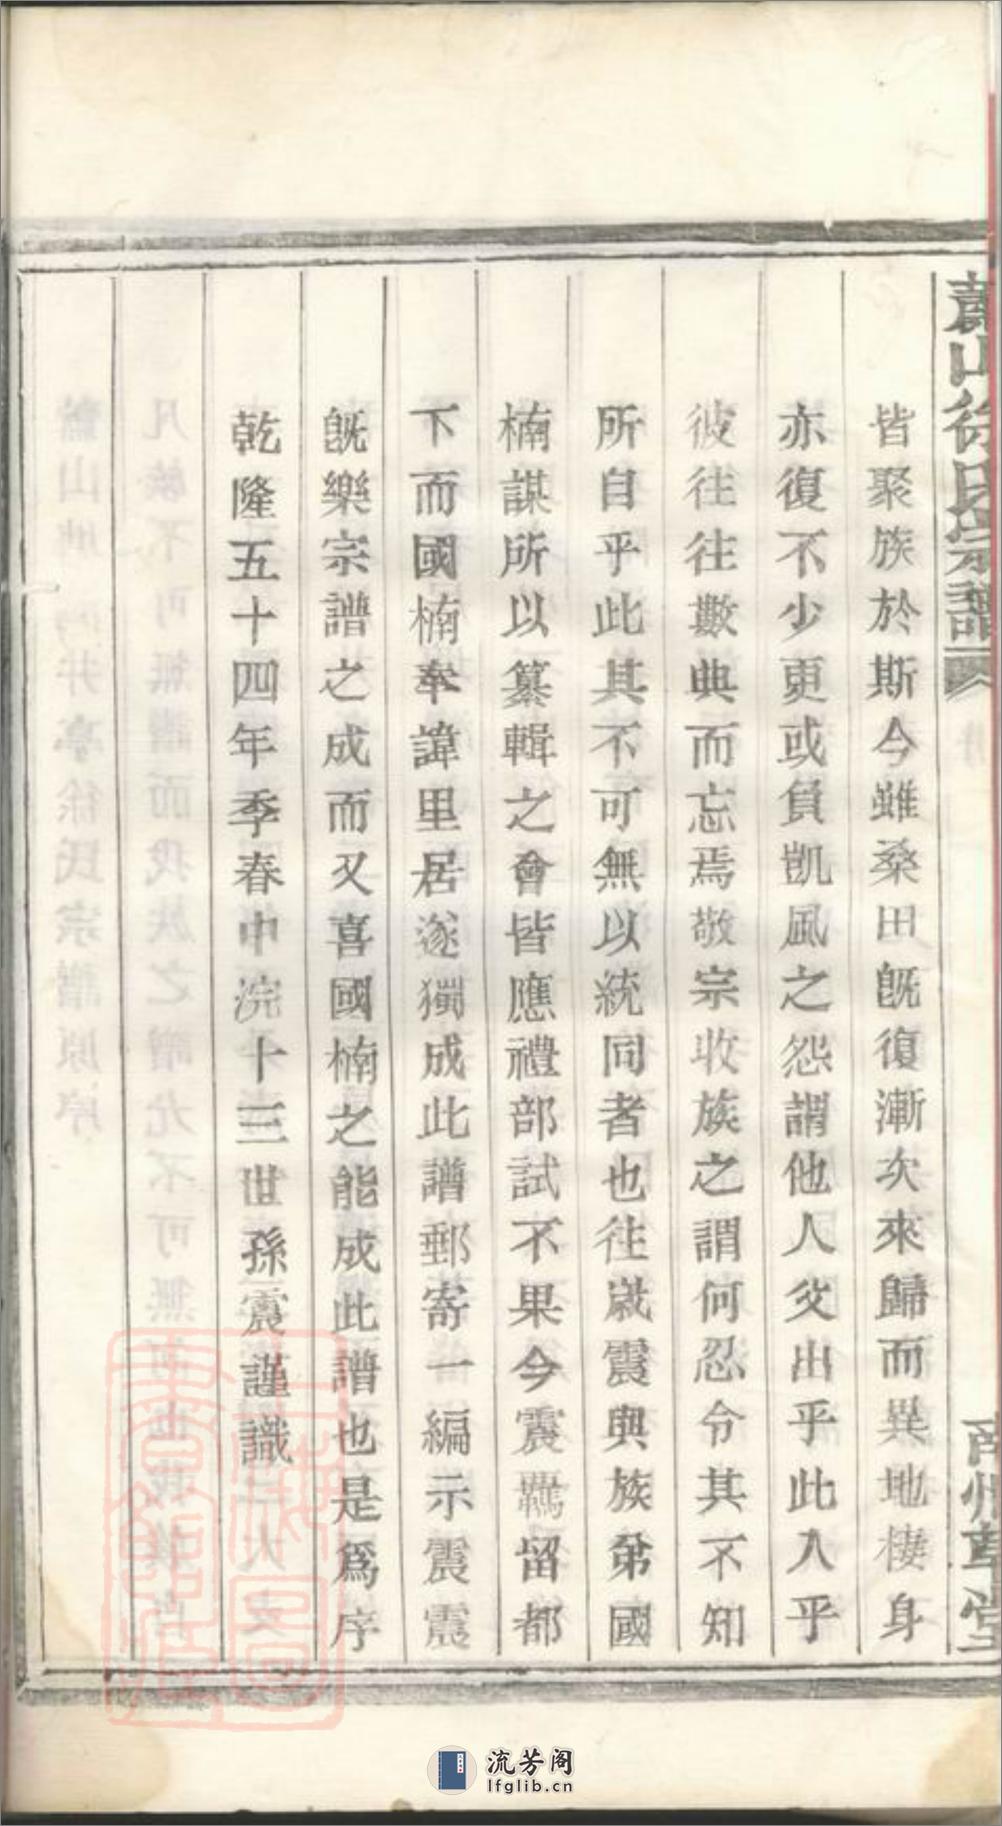 蕭山徐氏宗譜
南州草堂
皆聚族於斯今雖桑田旣復漸次來歸而異地棲身
亦復不少更或負凱風之怨謂他人父出乎此入乎
彼往往數典而忘焉敬宗收族之謂何忍令其不知
所自乎此其不可無以統同者也往歲震與族弟國
楠謀所以纂輯之會皆應禮部試不果今震羈留都
下而國楠奉諱里居遂獨成此譜郵寄一編示震震
旣樂宗譜之成而又喜國楠之能成此譜也是爲序
乾隆五十四年季春中浣十三世孫震謹識
流芳阁
lfglib.cn